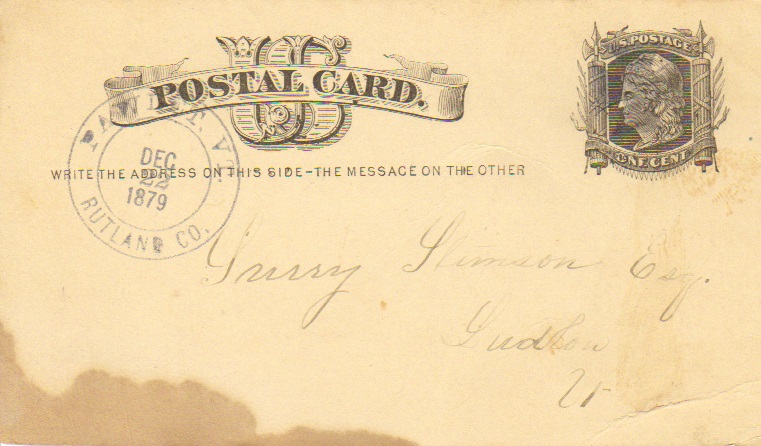 U.S. POSTAGE
US
POSTAL CARD.
ONE CENT
WRITE THE ADDRESS ON THIS SIDE-THE MESSAGE ON THE OTHER
PAWLET, VT.
DEC
22
1879
RUTLAND CO.
Stimson Esq.
Vt